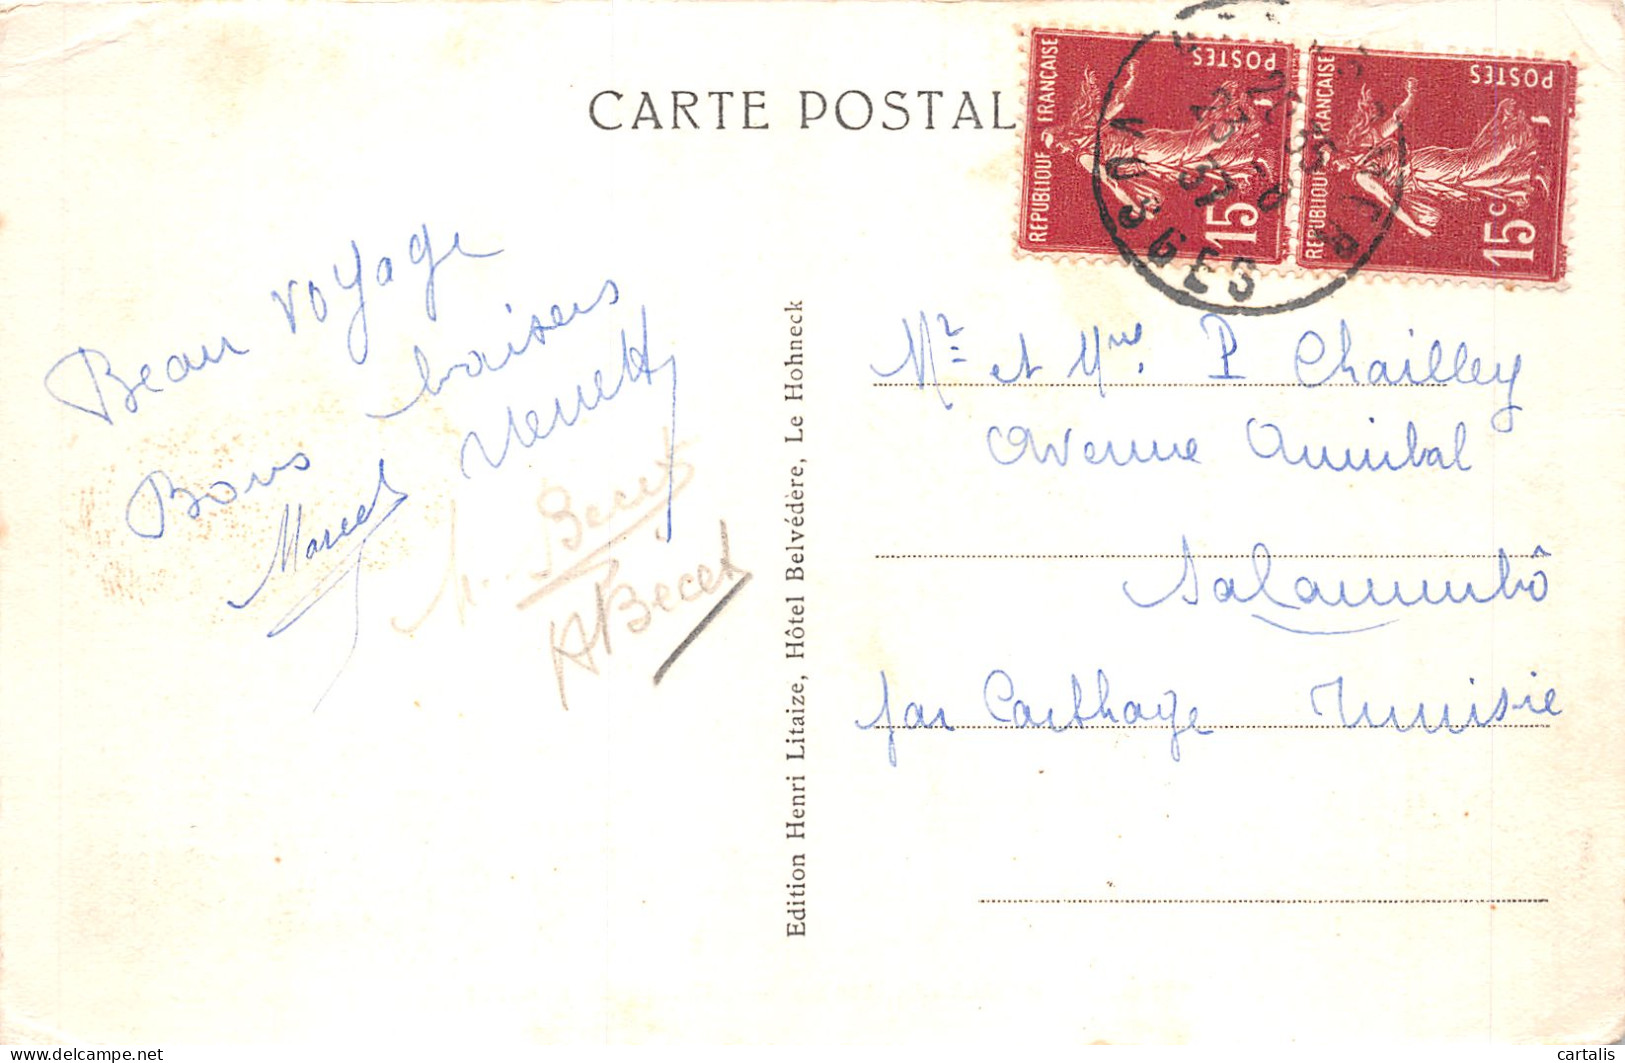 CARTE POSTAL
REPUBLIQUE FRANÇAISE
POSTES
15
REPUBLIQUE FRANÇAISE
POSTES
15c
VOSGES
Beau voyage
Bons baisers
Marcel
A Bécet
Edition Henri Litaize, Hôtel Belvédère, Le Hohneck
Mr et Mme P Chailley
Avenue Annibal
Salammbô
par Carthage Tunisie
delcampe.net
cartalis